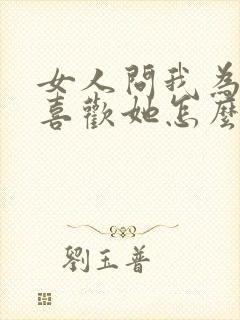 女人問我為
喜歡她怎麼
劉玉普